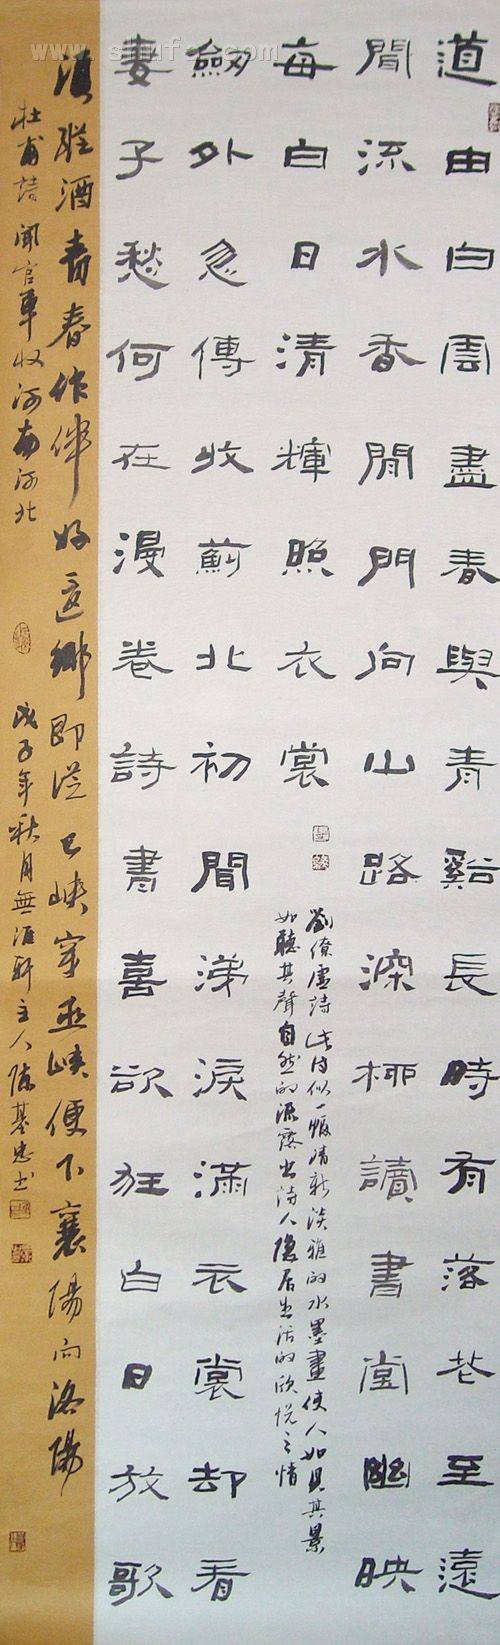 道由白雲盡春與青谿長時有落花至遠
聞流水香閒門向山路深柳讀書堂幽映
每白日清輝照衣裳
劉虛詩此诗似一幅清新淡雅的水墨畫使人如見其景
如聽其聲自然的流露出诗人隱居生活的欣悦之情
劍外忽傳收薊北初聞涕淚滿衣裳却看
妻子愁何在漫卷詩書喜欲狂白日放歌
須縱酒青春作伴好還鄉即從巴峽穿巫峽便下襄陽向洛陽
杜甫詩聞官軍收河南河北
戊子年秋月無涯軒主人陳基忠书